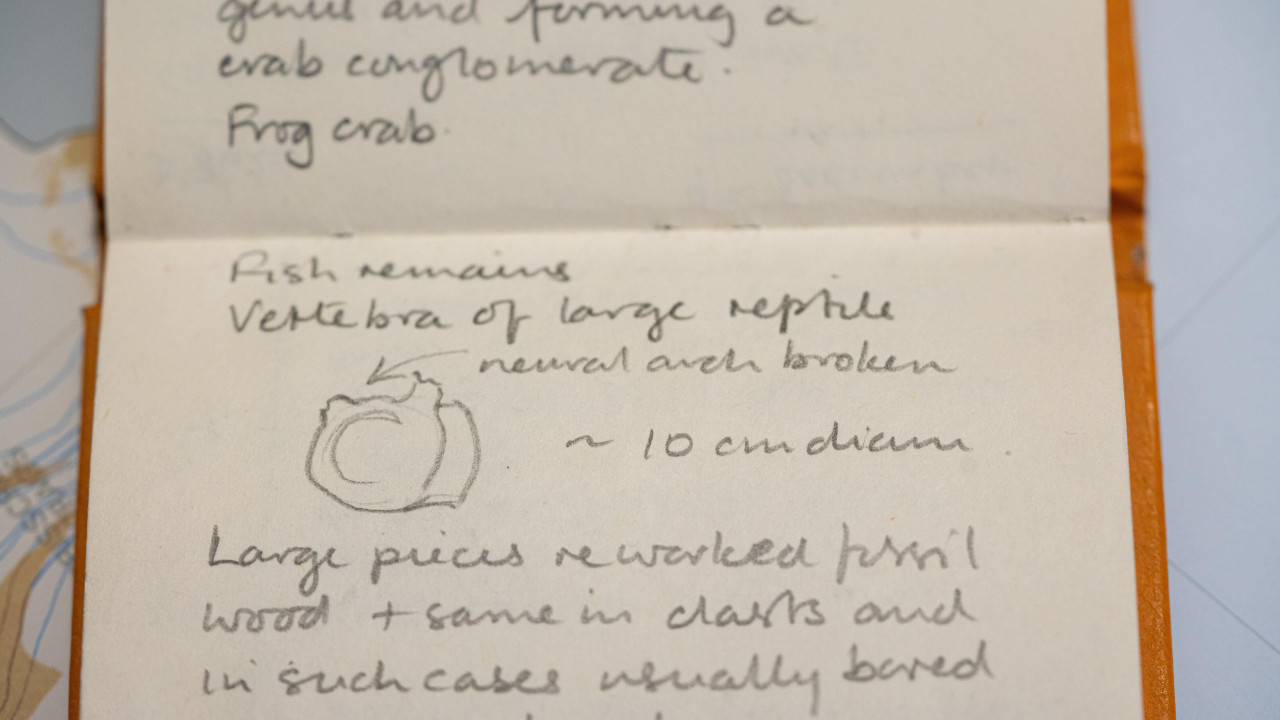 genus and forming a
crab conglomerate.
Frog crab.
Fish remains
Vertebra of large reptile
neural arch broken
~ 10 cm diam
Large pieces reworked fossil
wood + same in clasts and
in such cases usually bored